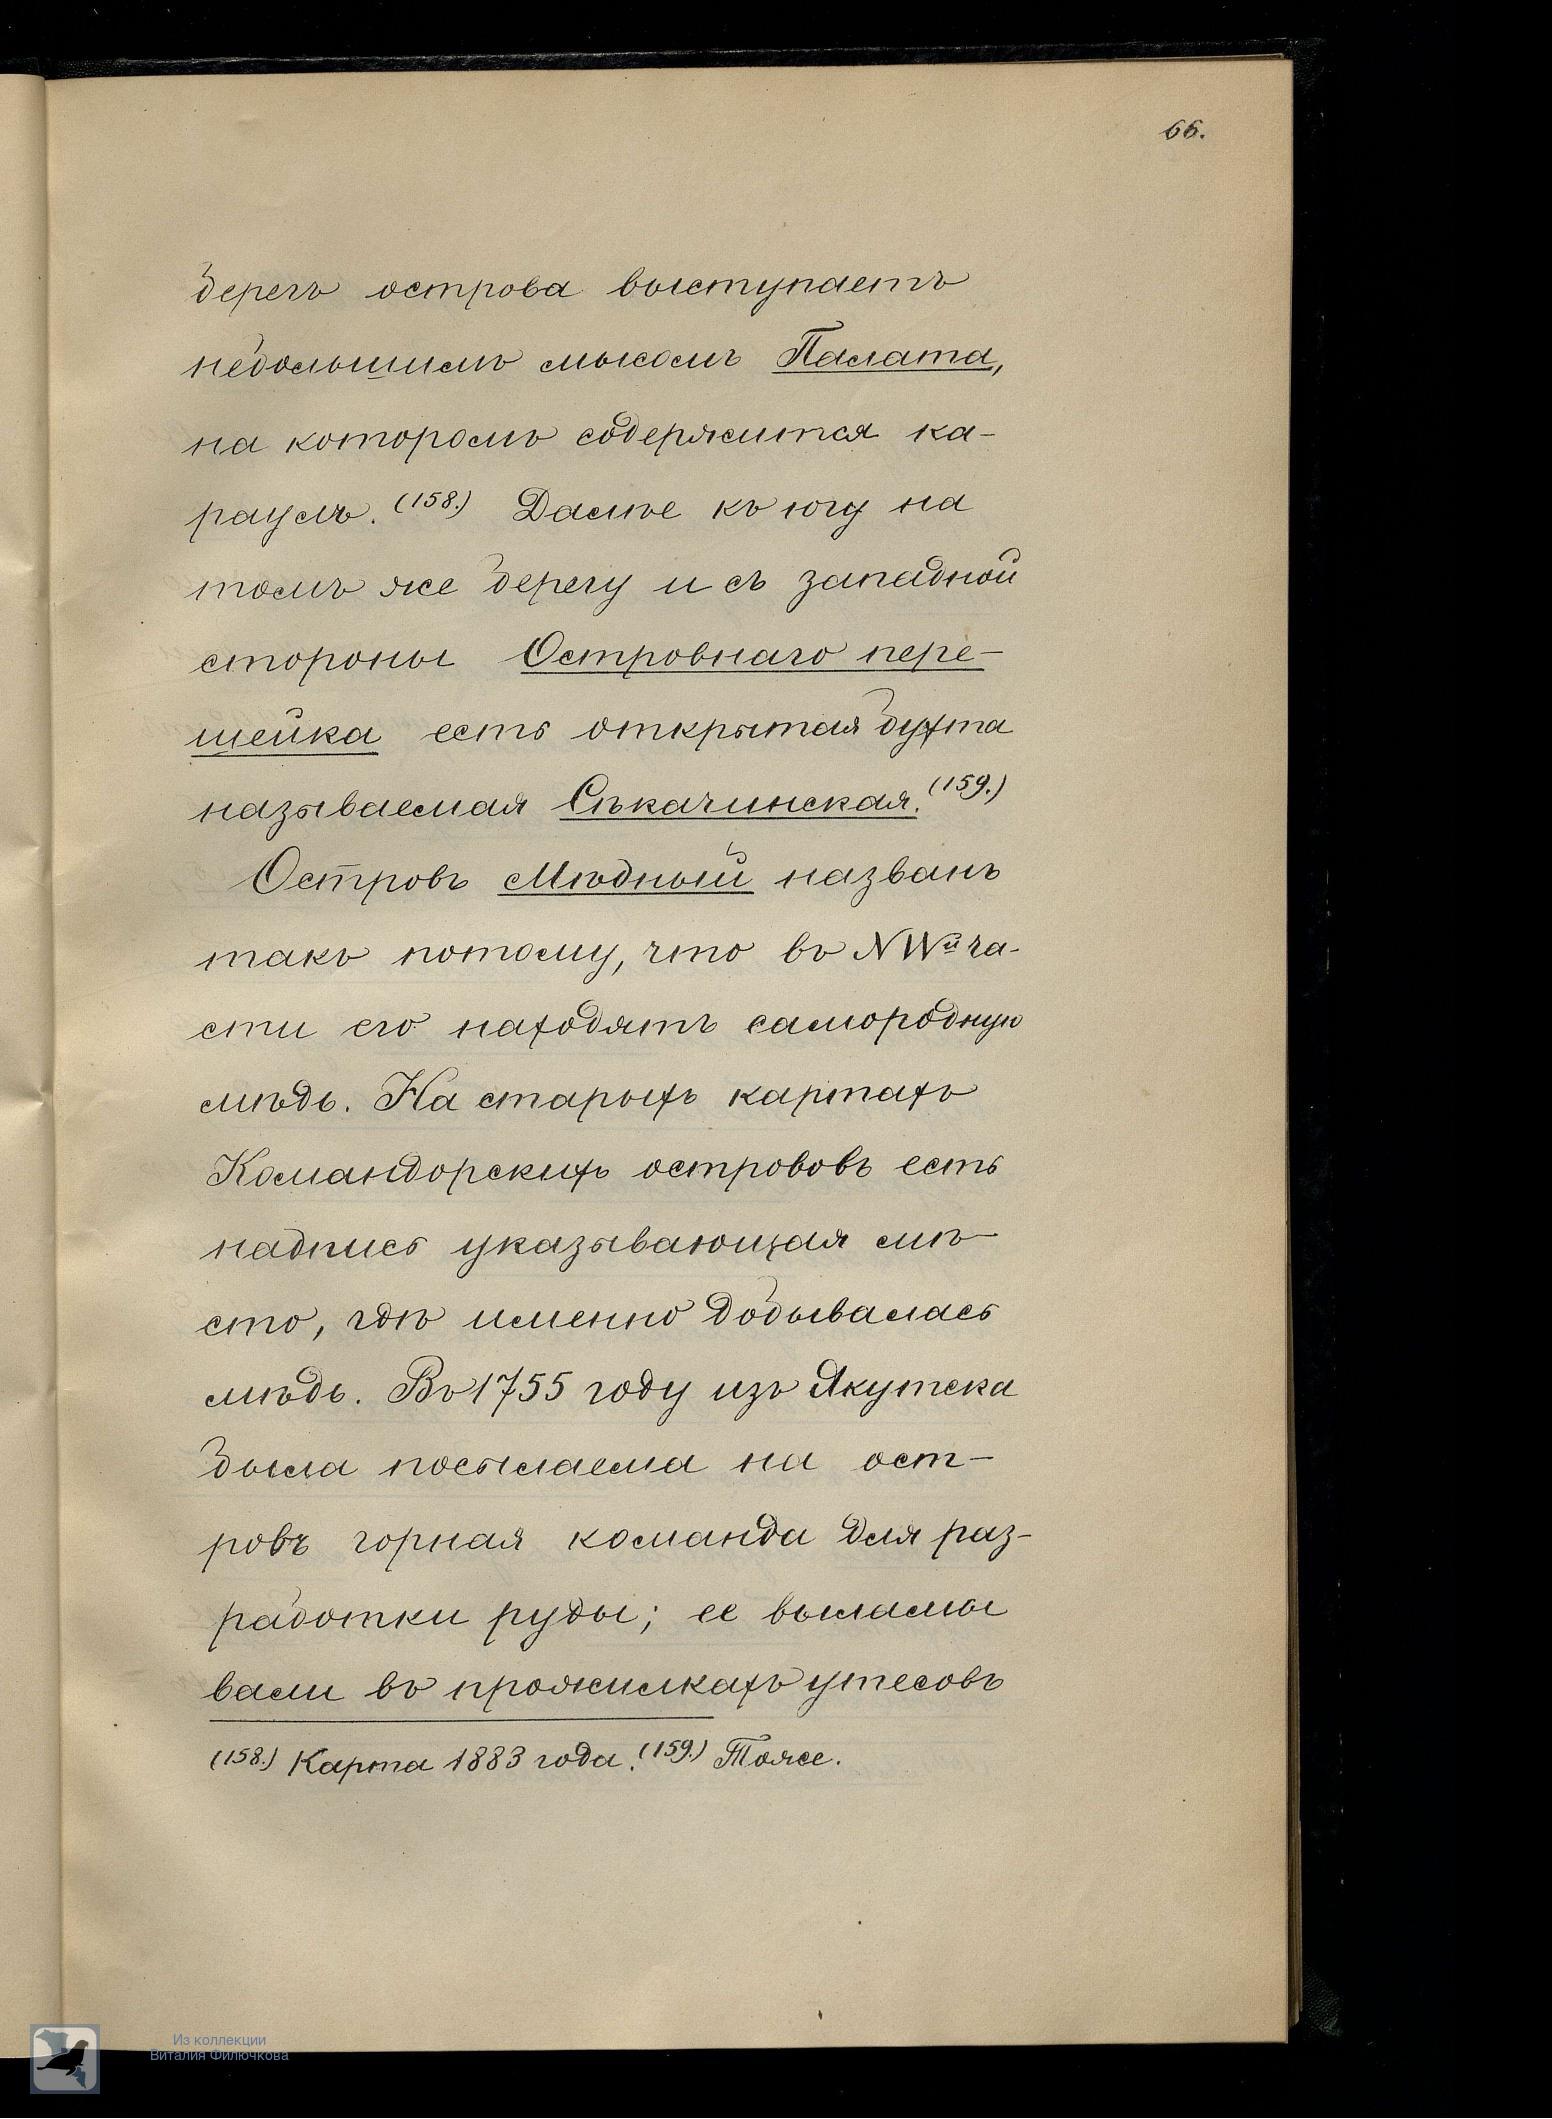 66.
берегъ острова выступаетъ
небольшимъ мысомъ Палата,
на которомъ содержится ка-
раулъ. (158.) Далѣе къ югу на
томъ же берегу и съ западной
стороны Островнаго пере-
шейка есть открытая бухта
называемая Сѣкачинская. (159.)
Островъ Мѣдный названъ
такъ потому, что въ NWй ча-
сти его находятъ самородную
мѣдь. На старыхъ картахъ
Командорскихъ острововъ есть
надпись указывающая мѣ-
сто, гдѣ именно добывалась
мѣдь. Въ 1755 году изъ Якутска
была посылаема на ост-
ровъ горная команда для раз-
работки руды; ее выламы
вали въ прожилкахъ утесовъ
(158.) Карта 1883 года. (159.) Тоже.
Из коллекции
Виталия Филючкова